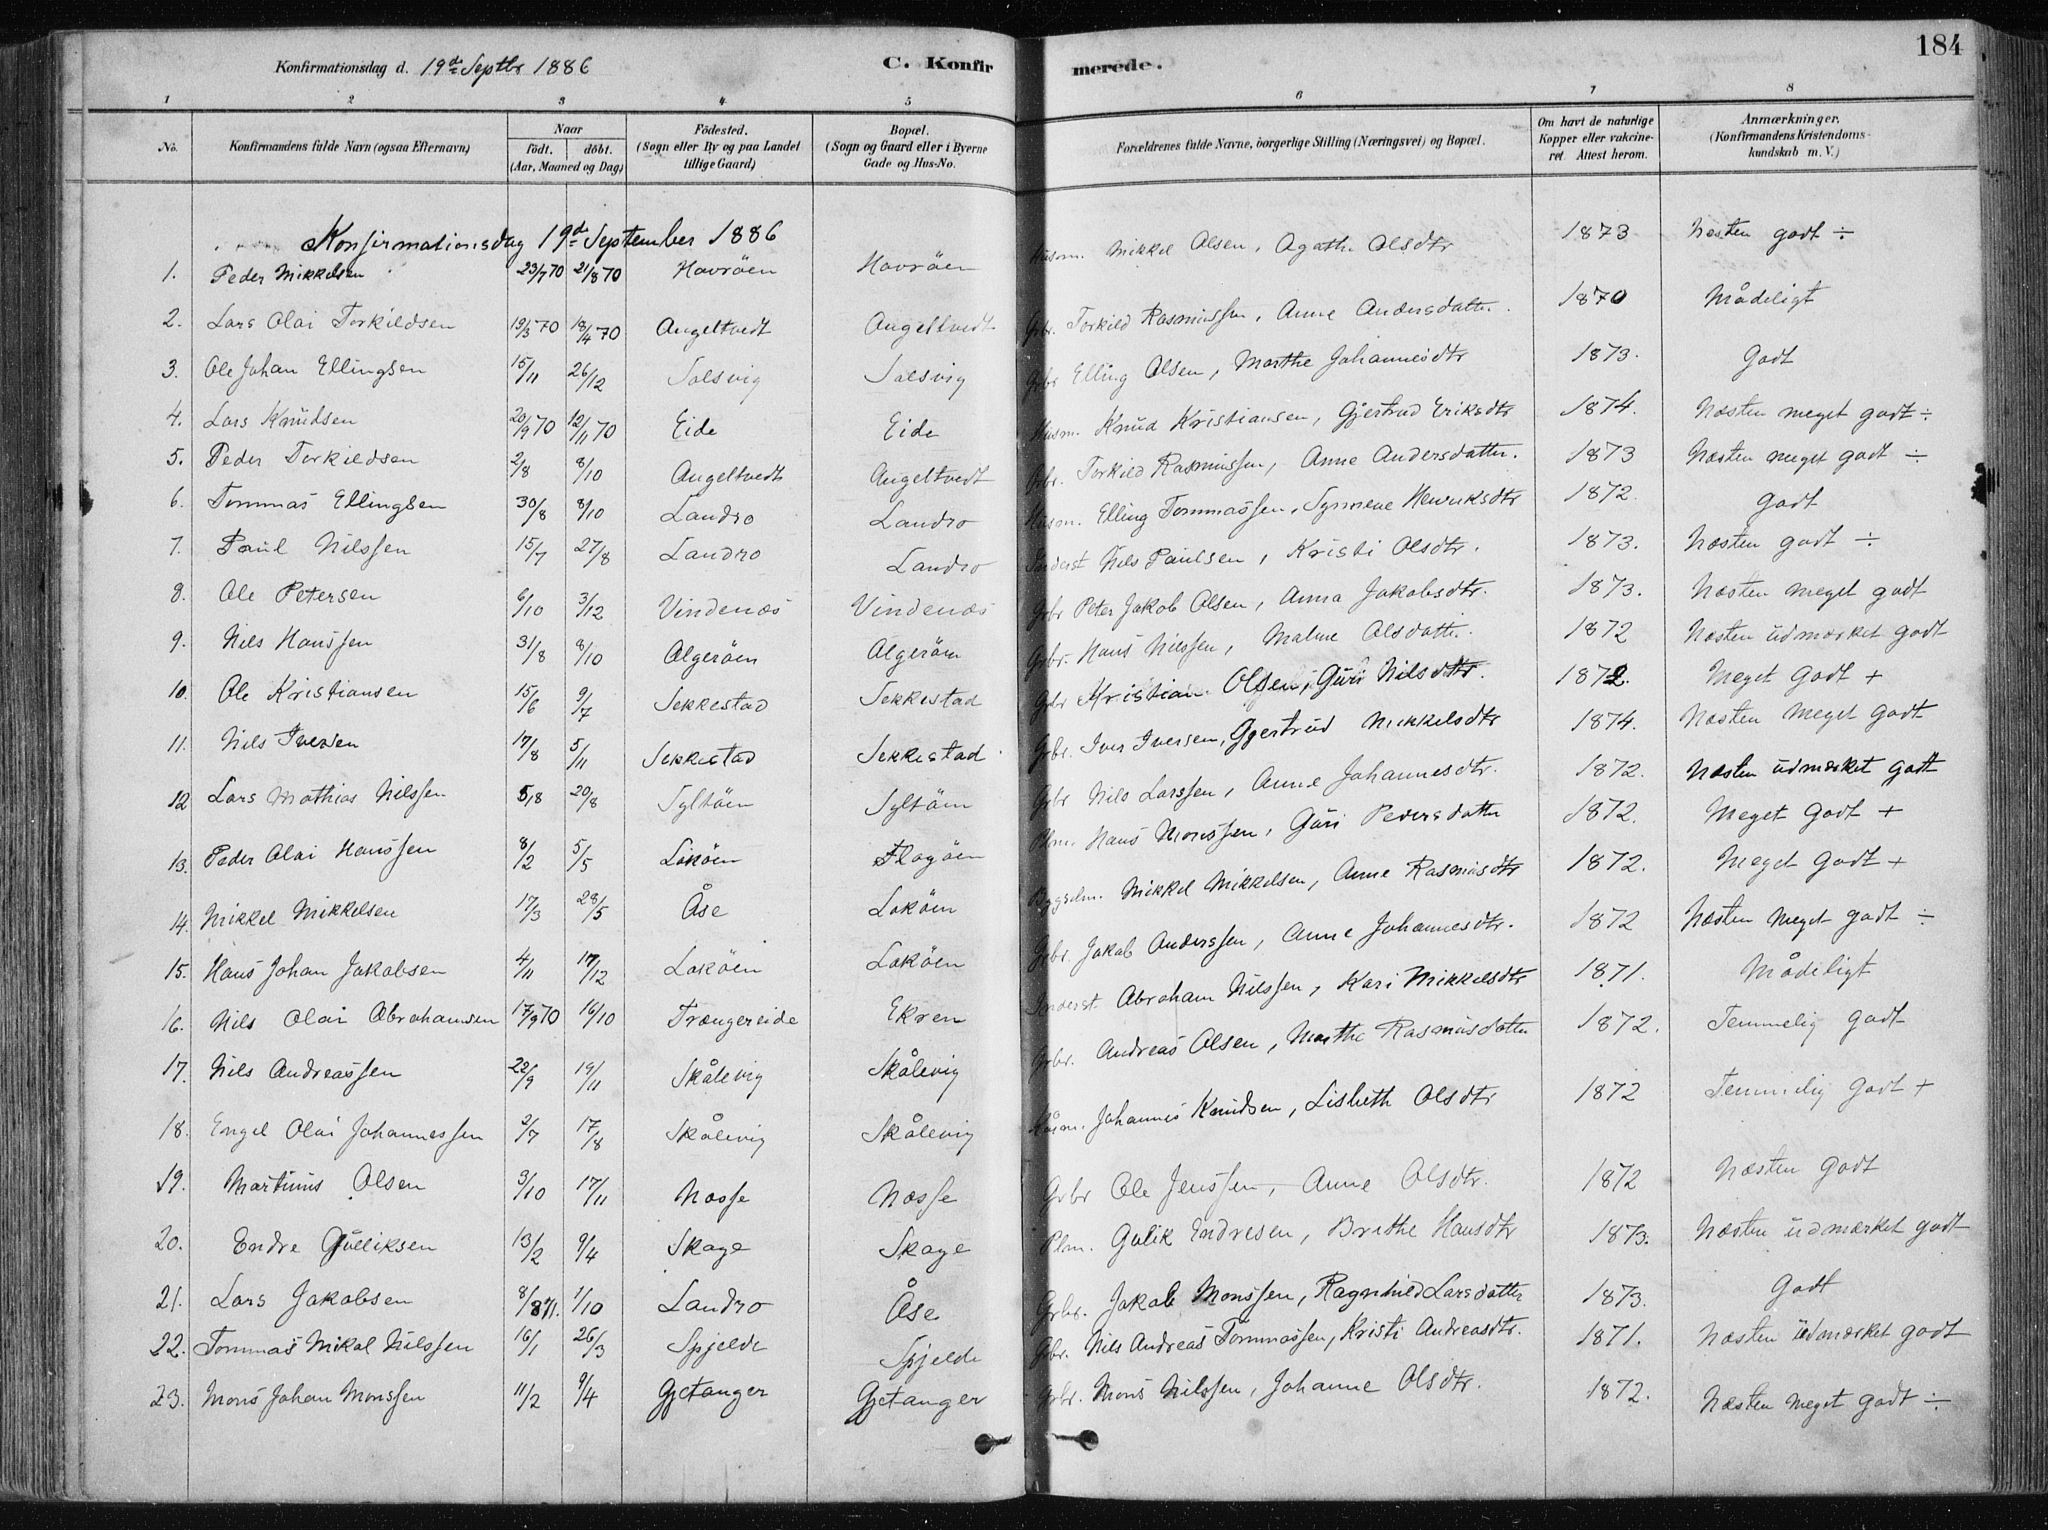 184
Konfirmationsdag d. 19de Septbr 1886 C. Konfirmerede.
1 2 3 4 5 6 7 8
No. Konfirmandens fulde Navn (ogsaa Efternavn) Naar födt. döbt. (Aar, Maaned og Dag) Födested. (Sogn eller By og paa Landet tillige Gaard) Bopæl. (Sogn og Gaard eller i Byerne Gade og Hus-No. Forældrenes fulde Navne, borgerlige Stilling (Næringsvei) og Bopæl. Om havt de naturlige Kopper eller vakcineret. Attest herom. Anmærkninger. (Konfirmandens Kristendomskundskab m. V.)
Konfirmationsdag 19de September 1886
1. Peder Mikkelsen 23/7 70 21/8 70 Havröen Havröen Husm. Mikkel Olsen, Agathe Olsdtr 1873 Næsten godt ÷
2. Lars Olai Torkildsen 19/3 70 18/4 70 Angeltvedt Angeltvedt Grbr. Torkild Rasmussen, Anne Andersdatter. 1870 Mådeligt
3. Ole Johan Ellingsen 15/11 26/12 Solsvig Solsvig Grbr Elling Olsen, Marthe Johannesdtr 1873. Godt
4. Lars Knudsen 20/9 70 12/11 70 Eide Eide Husm. Knud Kristiansen, Gjertrud Eriksdtr 1874. Næsten meget godt ÷
5. Peder Torkildsen 2/8 8/10 Angeltvedt Angeltvedt Grbr. Torkild Rasmussen, Anne Andersdatter. 1873 Næsten meget godt ÷
6. Tommas Ellingsen 30/8 8/10 Landro Landro Husm. Elling Tommassen, Synneve Henriksdtr 1872. Godt
7. Paul Nilssen 15/7 27/8 Landro Landro Inderst Nils Paulsen, Kristi Olsdtr. 1873. Næsten godt ÷
8. Ole Petersen 6/10 3/12 Vindenæs Vindenæs Grbr Peter Jakob Olsen, Anna Jakobsdtr. 1873. Næsten meget godt
9. Nils Hanssen 31/8 8/10 Algeröen Algeröen Grbr. Hans Nilssen, Malene Olsdatter. 1872 Næsten udmærket godt
10. Ole Kristiansen 15/6 9/7 Sekkestad Sekkestad Grbr Kristian Olsen, Guri Nilsdtr. 1872. Meget godt +
11. Nils Iversen 17/8 5/11 Sekkestad Sekkestad Grbr. Iver Iversen, Gjertrud Mikkelsdtr 1874. Næsten meget godt
12 Lars Mathias Nilssen 5/8 20/8 Syltöen Syltöen Grbr Nils Larssen, Anne Johannesdtr. 1872. Næsten udmærket godt
13. Peder Olai Hanssen 8/2 5/5 Loköen Flagöen Plm. Hans Monssen, Guri Pedersdatter 1872. Meget godt +
14. Mikkel Mikkelsen 17/3 28/5 Åse Loköen Bygselm. Mikkel Mikkelsen, Anne Rasmusdtr 1872. Meget godt +
15. Hans Johan Jakobsen 4/11 17/12 Loköen Loköen Grbr. Jakob Anderssen, Anne Johannesdtr. 1872 Næsten meget godt ÷
16. Nils Olai Abrahamsen 17/9 70 16/10 Trængereide Ekren Inderst. Abraham Nilssen, Kari Mikkelsdtr 1871. Mådeligt
17. Nils Andreassen 22/9 19/11 Skålevig Skålevig Grbr. Andreas Olsen, Marthe Rasmusdatter 1872. Temmelig godt
18. Engel Olai Johannessen 2/7 17/8 Skålevig Skålevig Husm. Johannes Knudsen, Lisbeth Olsdtr 1872 Temmelig godt +
19. Martinus Olsen 3/10 17/11 Næsse Næsse Grbr Ole Jenssen, Anne Olsdtr. 1872 Næsten godt
20. Endre Gulliksen 13/2 9/4 Skage Skage Plm. Gulik Endresen, Brithe Hansdtr 1873. Næsten udmærket godt
21. Lars Jakobsen 8/8 71. 1/10 Landro Åse Grbr. Jakob Monssen, Ragnhild Larsdatter 1873. Godt
22. Tommas Mikal Nilssen 16/1 26/3 Spjelde Spjelde Grbr. Nils Andreas Tommassen, Kristi Andreasdtr. 1871. Næsten udmærket godt
23. Mons Johan Monssen 11/2 9/4 Gjetanger Gjetanger Grbr. Mons Nilssen, Johanne Olsdtr. 1872. Næsten meget godt ÷